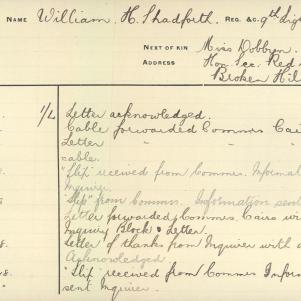 NAME William H. Shadforth. REG. &C. 9th Lig
NEXT OF KIN Miss Dobbyn.
ADDRESS Hon. Sec. Red
Broken Hil
1/L Letter acknowledged.
Cable forwarded Commrs Cai
Letter " "
cable.
"Slip" received from Commrs. Informat
Inquirer.
"Slip" from Commrs. Information sent
Letter forwarded Commrs. Cairo wi
Inquiry Block & Letter.
8. Letter of thanks from Inquirer with a
Acknowledged
18. "Slip" received from Commrs Infor
sent Inquirer.